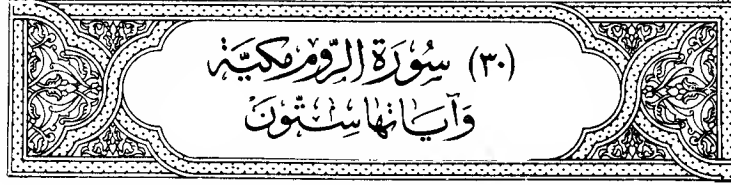 (٣٠) سُورَةُ الرُّومِ مَكِّيَّةٌ
وَآيَاتُهَا سِتُّونَ